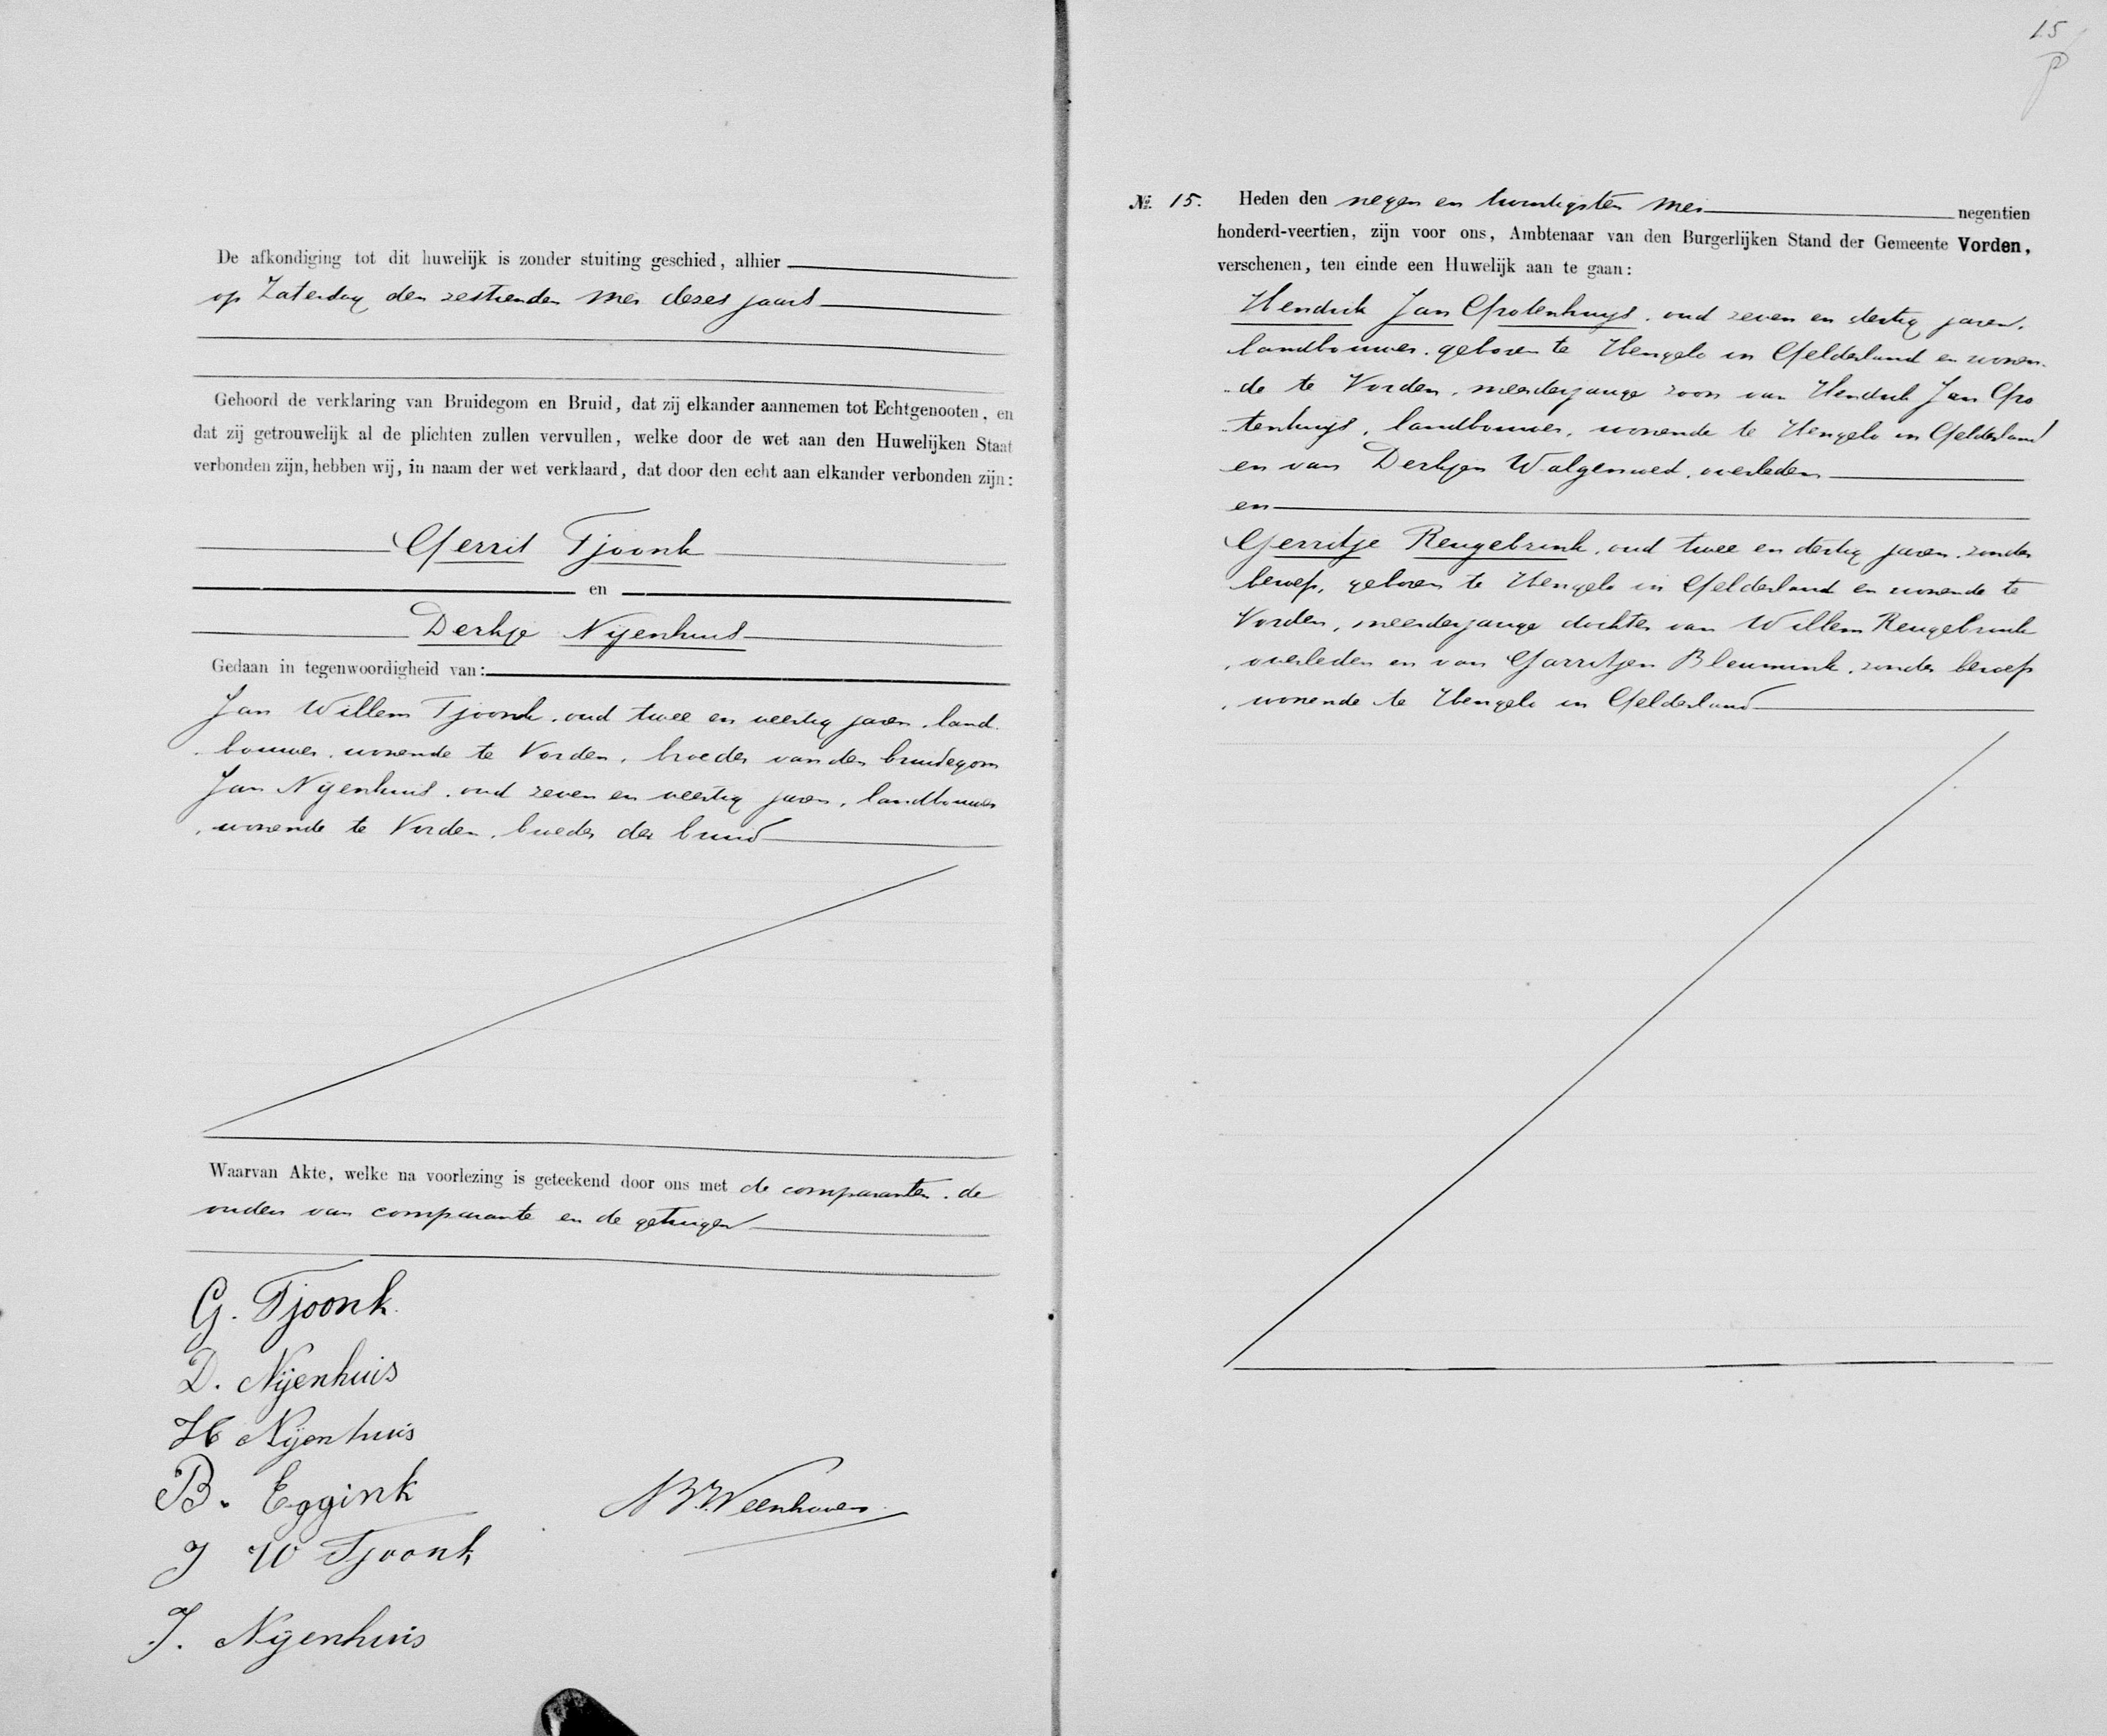 De afkondiging tot dit huwelijk is zonder stuiting geschied, alhier
op Zaterdag den zestienden Mei dezes jaars
Gehoord de verklaring van Bruidegom en Bruid, dat zij elkander aannemen tot Echtgenooten, en
dat zij getrouwelijk al de plichten zullen vervullen, welke door de wet aan den Huwelijken Staat
verbonden zijn, hebben wij, in naam der wet verklaard, dat door den echt aan elkander verbonden zijn:
Gerrit Tjoonk
en
Derkje Nijenhuis
Gedaan in tegenwoordigheid van:
Jan Willem Tjoonk, oud twee en veertig jaren, land-
bouwer, wonende te Vorden, broeder van den bruidegom
Jan Nijenhuis, oud zeven en veertig jaren, landbouwer
, wonende te Vorden, broeder der bruid
Waarvan Akte, welke na voorlezing is geteekend door ons met de comparanten, de
ouders van comparante en de getuigen
G. Tjoonk.
D. Nijenhuis
H Nijenhuis
B. Eggink
J W Tjoonk
J. Nijenhuis
15
No. 15. Heden den negen en twintigsten Mei negentien
honderd-veertien, zijn voor ons, Ambtenaar van den Burgerlijken Stand der Gemeente Vorden,
verschenen, ten einde een Huwelijk aan te gaan:
Hendrik Jan Grotenhuys, oud zeven en dertig jaren,
landbouwer, geboren te Hengelo in Gelderland en wonen-
de te Vorden, meerderjarige zoon van Hendrik Jan Gro
tenhuys, landbouwer, wonende te Hengelo in Gelderland
en van Derkjen Walgemoed, overleden
en
Gerritje Reugebrink, oud twee en dertig jaren, zonder
beroep, geboren te Hengelo in Gelderland en wonende te
Vorden, meerderjarige dochter van Willem Reugebrink
, overleden en van Garritjen Bleumink, zonder beroep
, wonende te Hengelo in Gelderland